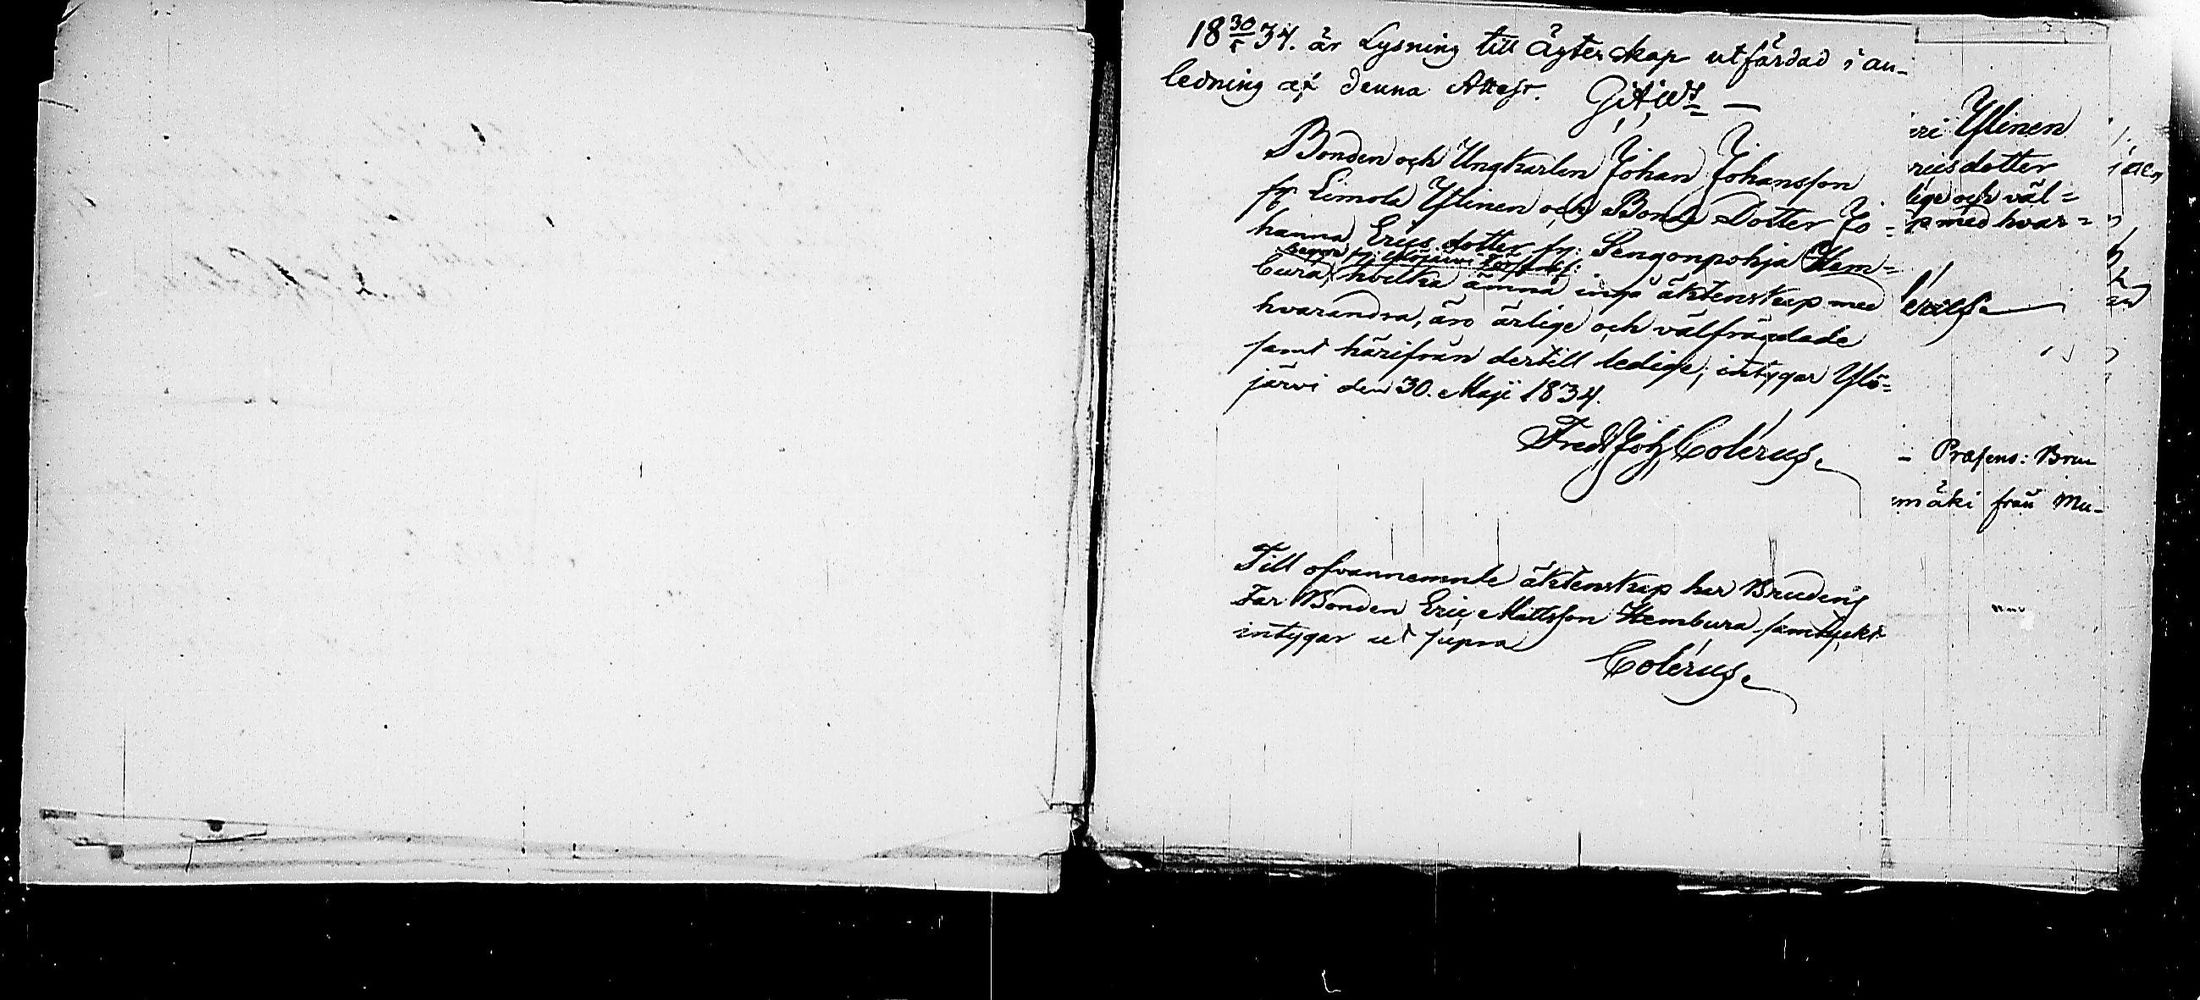 18 30/5 34. är Lysning till Ägterskap utfärdad i an-
ledning af denna Attest. G.A.W.
Bonden och Ungkarlen Johan Johansson
fr. Limola Ylinen och Bonde Dotter Jo-
hanna Erics dotter fr. Pengonpohja Hem-
begge fr. Ylöjärvi
bura, hvilka ämna ingå äktenskap med
hvarandra, äro ärlige och välfrägdade
samt härifrån dertill ledige; intygar Ylö-
järvi den 30. Maji 1834.
Fredr Joh Colérus.
Till ofvannemnde äktenskap har Brudens
Far Bonden Eric Mattsson Hembura samtyckt
intygar ut supra
Colérus.
Ylinen
ricsdotter
lige och väl=
med hvar=
- Præsens: Bru
mäki från Mu-